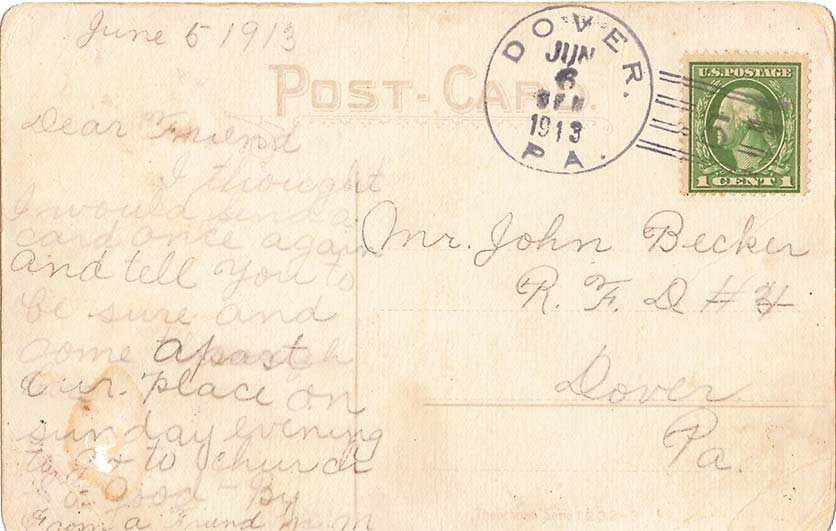 June 5 1913
DOVER.
JUN
6
1913
PA.
U.S. POSTAGE
5
1 CENT 1
POST-CARD.
Dear Friend
I thought
I would send a
card once again
and tell you to
be sure and
come apast
our place on
sunday evening
to go to church
Good-By
From a Friend
Mr. John Becker
R. F. D #4
Dover
Pa.